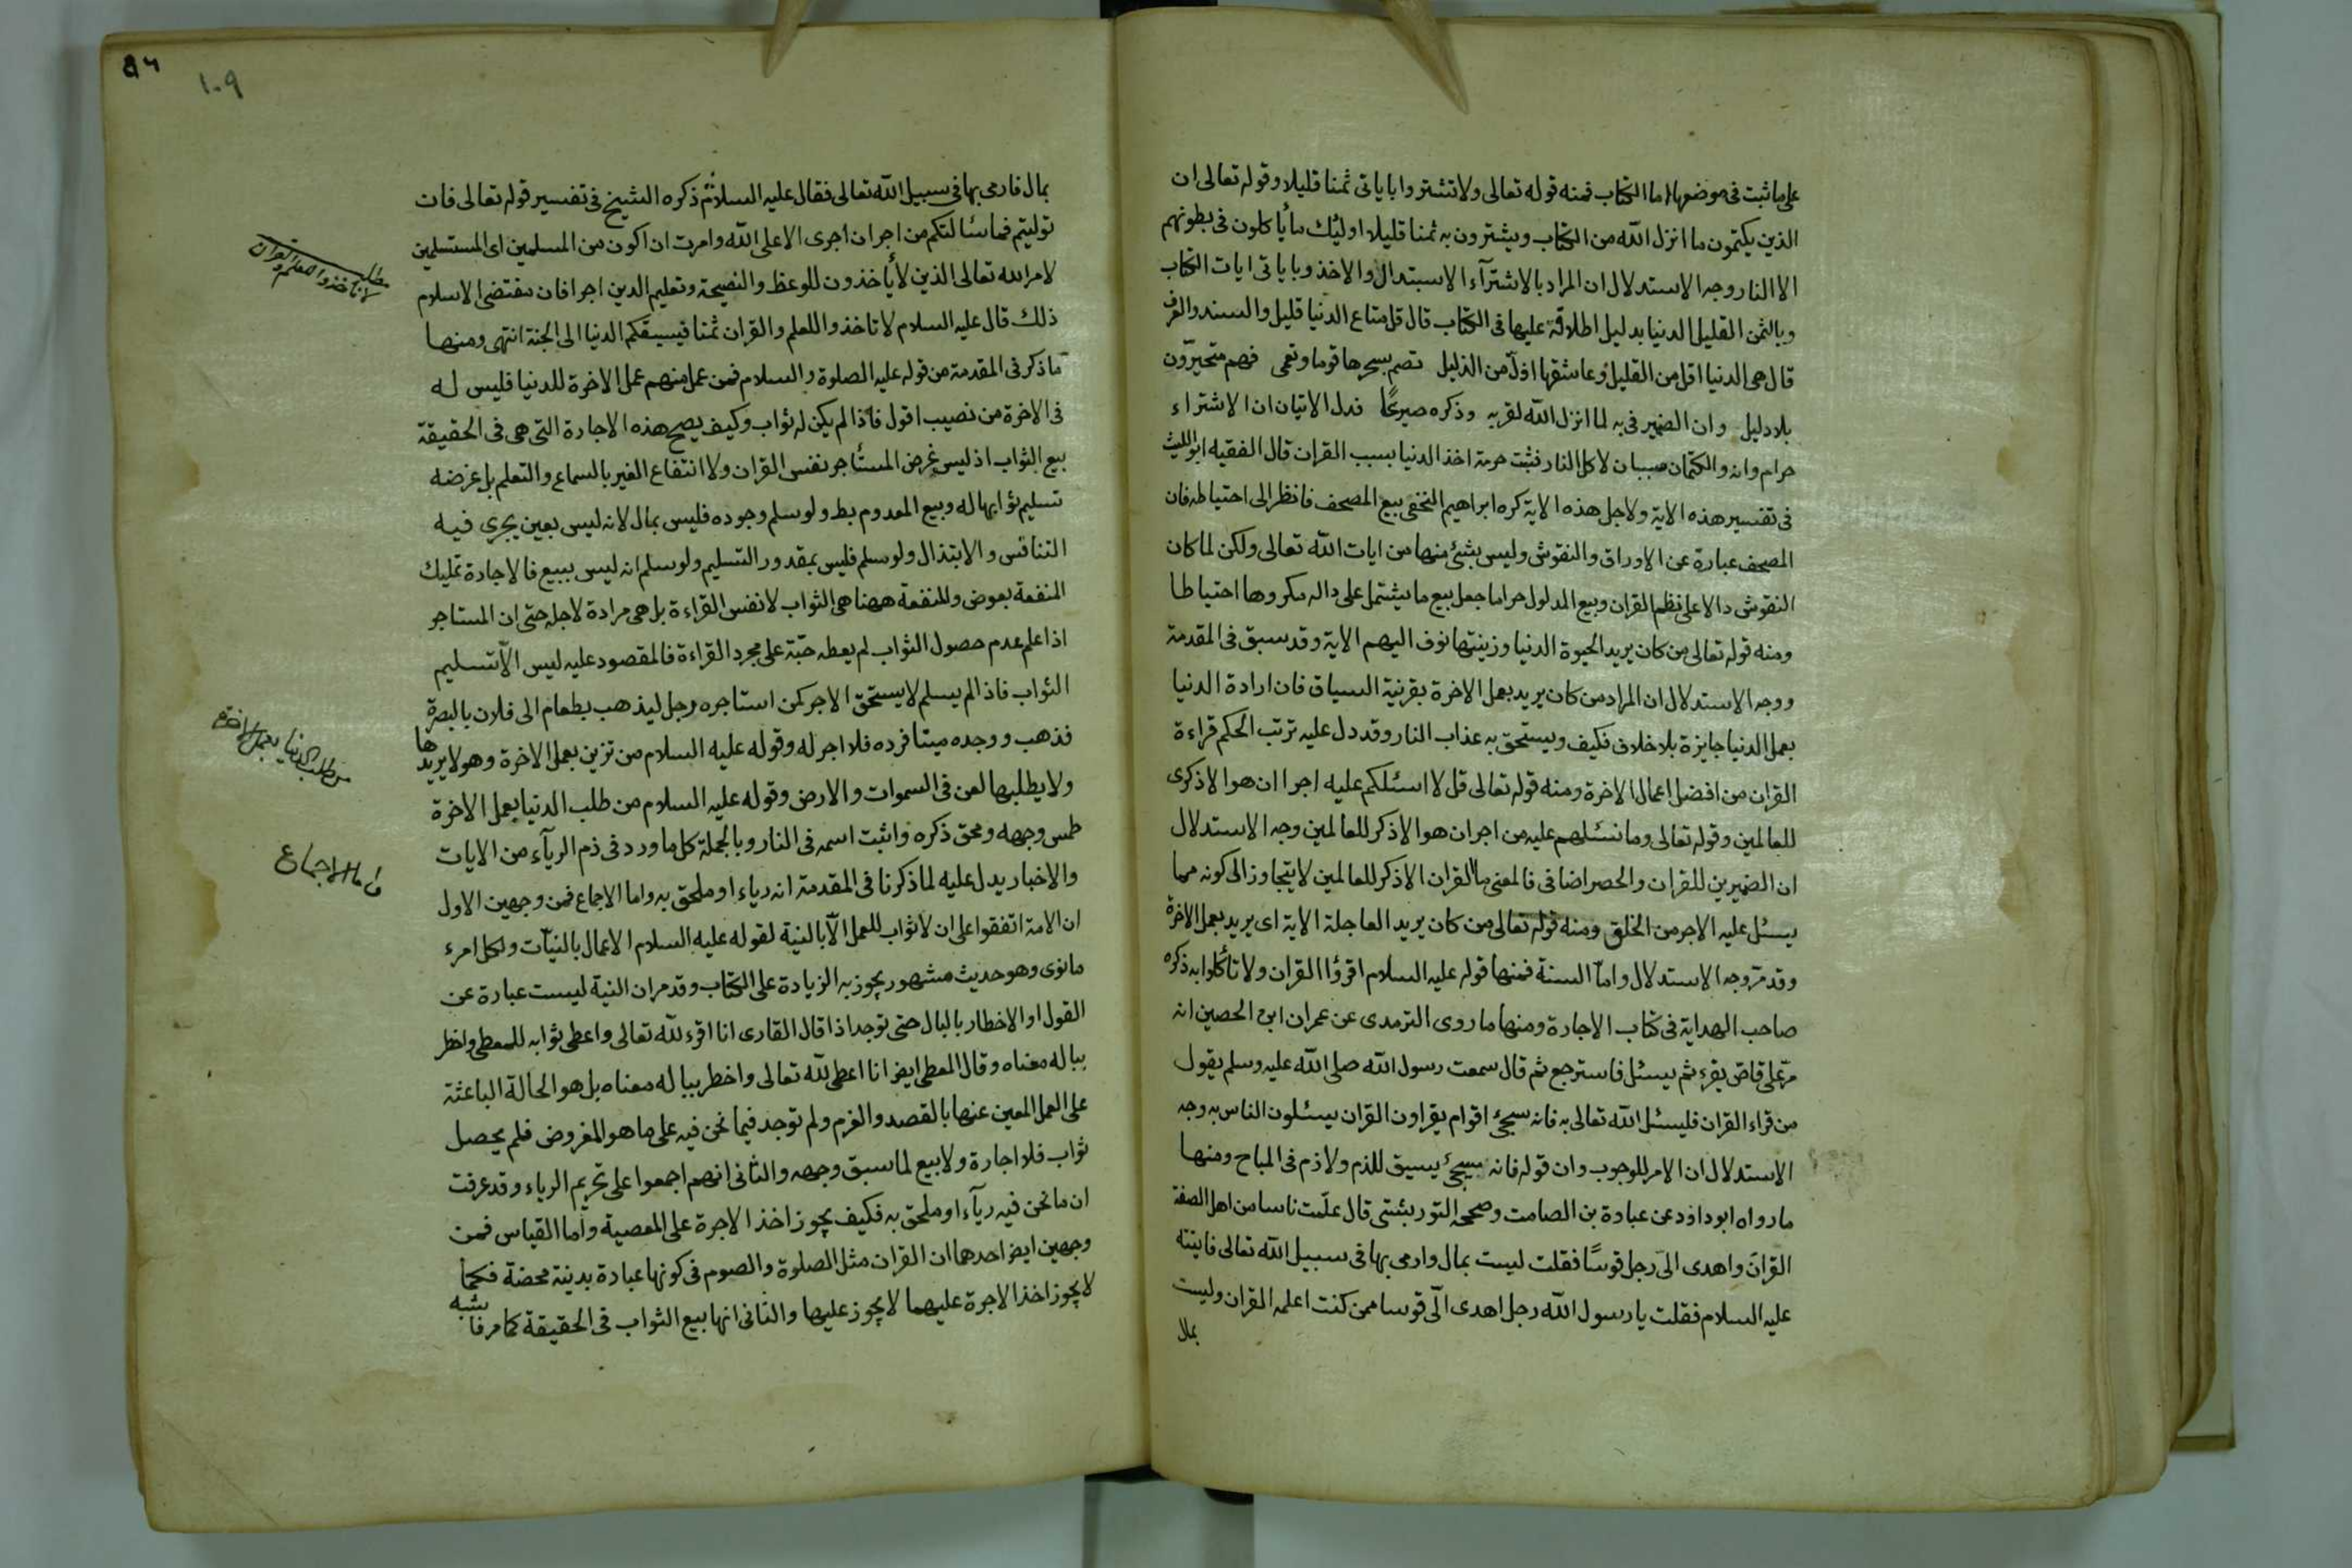 على ما ثبت فى موضعها اما الكتاب فمنه قوله تعالى ولا تشتروا باياتى ثمنا قليلا وقوله تعالى ان
الذين يكتمون ما انزل الله من الكتاب ويشترون به ثمنا قليلا اولئك ما يأكلون فى بطونهم
الا النار وجه الاستدلال ان المراد بالاشترآء الاستبدال والاخذ وباياتى ايات الكتاب
وبالثمن القليل الدنيا بدليل اطلاقه عليها فى الكتاب قال قل متاع الدنيا قليل والسند والعرف
قال هى الدنيا اقل من القليل وعاشقها اذلّ من الذليل تصم بسحرها قوما وتعمى فهم متحيرّون
بلا دليل وان الضمير فى به لما انزل الله لقربه وذكره صريحًا فدل الاتيان ان الاشتراء
حرام وانه والكتمان سببان لاكل النار فثبت حرمة اخذ الدنيا بسبب القران قال الفقيه ابو الليث
فى تفسير هذه الاية ولاجل هذه الاية كره ابراهيم النخعى بيع المصحف فانظر الى احتياطه فان
المصحف عبارة عن الاوراق والنقوش وليس بشئ منها من ايات الله تعالى ولكن لما كان
النقوش دالا على نظم القران وبيع المدلول حراما جعل بيع ما يشتمل على داله مكروها احتياطا
ومنه قوله تعالى من كان يريد الحيوة الدنيا وزينتها نوف اليهم الاية وقد سبق فى المقدمة
ووجه الاستدلال ان المراد من كان يريد بعمل الاخرة بقرنية السياق فان ارادة الدنيا
بعمل الدنيا جايزة بلا خلاف فكيف ويستحق به عذاب النار وقد دل عليه ترتب الحكم قراءة
القران من افضل اعمال الاخرة ومنه قوله تعالى قل لا اسئلكم عليه اجرا ان هو الا ذكرى
للعالمين وقوله تعالى وما تسئلهم عليه من اجر ان هو الا ذكر للعالمين وجه الاستدلال
ان الضميرين للقران والحصر اضافى فالمعنى ما القران الا ذكر للعالمين لا يتجاوز الى كونه مما
يسئل عليه الاجر من الخلق ومنه قوله تعالى من كان يريد العاجلة الاية اى يريد بعمل الاخرة
وقد مرّ وجه الاستدلال وامّا السنة فمنها قوله عليه السلام اقرؤا القران ولا تأكلوا به ذكره
صاحب الهداية فى كتاب الاجارة ومنها ما روى الترمدى عن عمران ابن الحصين انه
مرّ على قاصّ يقرء ثم يسئل فاسترجع ثم قال سمعت رسول الله صلى الله عليه وسلم يقول
من قراء القران فليسئل الله تعالى به فانه سيجئ اقوام يقراون القران يسئلون الناس به وجه
الاستدلال ان الامر للوجوب وان قوله فانه سيجئ يسيق للذم ولا ذم فى المباح ومنها
ما رواه ابو داود عن عبادة بن الصامت وصححه التوربشتى قال علّمت ناسا من اهل الصفة
القران واهدى الىّ رجل قوسًا فقلت ليست بمال وارمى بها فى سبيل الله تعالى فاتيته
عليه السلام فقلت يا رسول الله رجل اهدى الىّ قوسا ممن كنت اعلمه القران وليست
بمال
٩٦
١٠٩
بمال فارمى بها فى سبيل الله تعالى فقال عليه السلام ذكره الشيخ فى تفسير قوله تعالى فان
توليتم فما سئالتكم من اجر ان اجرى الا على الله وامرت ان اكون من المسلمين اى المستسلمين
لامر الله تعالى الذين لا يأخذون للوعظ والنصيحة وتعليم الدين اجرا فان مقتضى الاسلام
ذلك قال عليه السلام لا تاخذوا للعلم والقران ثمنا فيسبقكم الدنيا الى الجنة انتهى ومنها
ما ذكر فى المقدمة من قوله عليه الصلوة والسلام فمن عمل منهم عمل الاخرة للدنيا فليس له
فى الاخرة من نصيب اقول فاذا لم يكن له ثواب وكيف يصح هذه الاجارة التى هى فى الحقيقة
بيع الثواب اذ ليس غرض المستأجر نفس القران ولا انتفاع الغير بالسماع والتعلم بل غرضه
تسليم ثوابها له وبيع المعدوم بط ولو سلم وجوده فليس بمال لانه ليس بعين يجرى فيه
التنافس والابتذال ولو سلم فليس بمقدور التسليم ولو سلم انه ليس ببيع فالاجارة تمليك
المنفعة بعوض والمنفعة ههنا هى الثواب لا نفس القراءة بل هى مرادة لاجله حتى ان المستاجر
اذا علم عدم حصول الثواب لم يعطه حبّة على مجرد القراءة فالمقصود عليه ليس الّا تسليم
الثواب فاذا لم يسلم لا يستحق الاجر كمن استاجره رجل ليذهب بطعام الى فلان بالبصرة
فذهب ووجده ميتا فرده فلا اجر له وقوله عليه السلام من تزين بعمل الاخرة وهو لا يريدها
ولا يطلبها لعن فى السموات والارض وقوله عليه السلام من طلب الدنيا بعمل الاخرة
طمس وجهه ومحق ذكره واثبت اسمه فى النار وبالجملة كل ما ورد فى ذم الريآء من الايات
والاخبار يدل عليه لما ذكرنا فى المقدمة انه رياء او ملحق به واما الاجماع فمن وجهين الاول
ان الامة اتفقوا على ان لا ثواب للعمل الّا بالنية لقوله عليه السلام الاعمال بالنيّات ولكل امرء
ما نوى وهو حديث مشهور يجوز به الزيادة على الكتاب وقد مر ان النية ليست عبارة عن
القول او الاخطار بالبال حتى توجد اذا قال القارى انا اقرء لله تعالى واعطى ثوابه للمعطى واخطر
بباله معناه وقال المعطى ايضا انا اعطى لله تعالى واخطر بباله معناه بل هو الحالة الباعثة
على العمل المعين عنها بالقصد والعزم ولم توجد فيما نحن فيه على ما هو المفروض فلم يحصل
ثواب فلا اجارة ولا بيع لما سبق وجهه والثانى انهم اجمعوا على تحريم الرياء وقد عرفت
ان ما نحن فيه ريآء او ملحق به فكيف يجوز اخذ الاجرة على المعصية وأما القياس فمن
وجهين ايضا احدهما ان القران مثل الصلوة والصوم فى كونها عبادة بدنية محضة فكما
لا يجوز اخذ الاجرة عليهما لا يجوز عليها والثانى انها بيع الثواب فى الحقيقة كما مر فاشبه
مطلب
لا تاخذوا للعلم والقران
من طلب الدنيا بعمل الاخرة
واما الاجماع